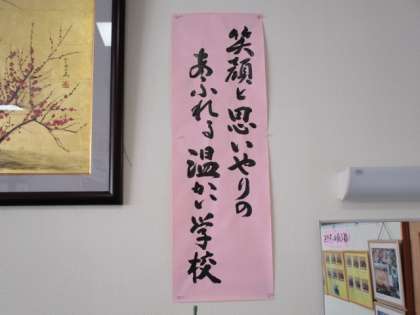 笑顔と思いやりの
あふれる温かい学校